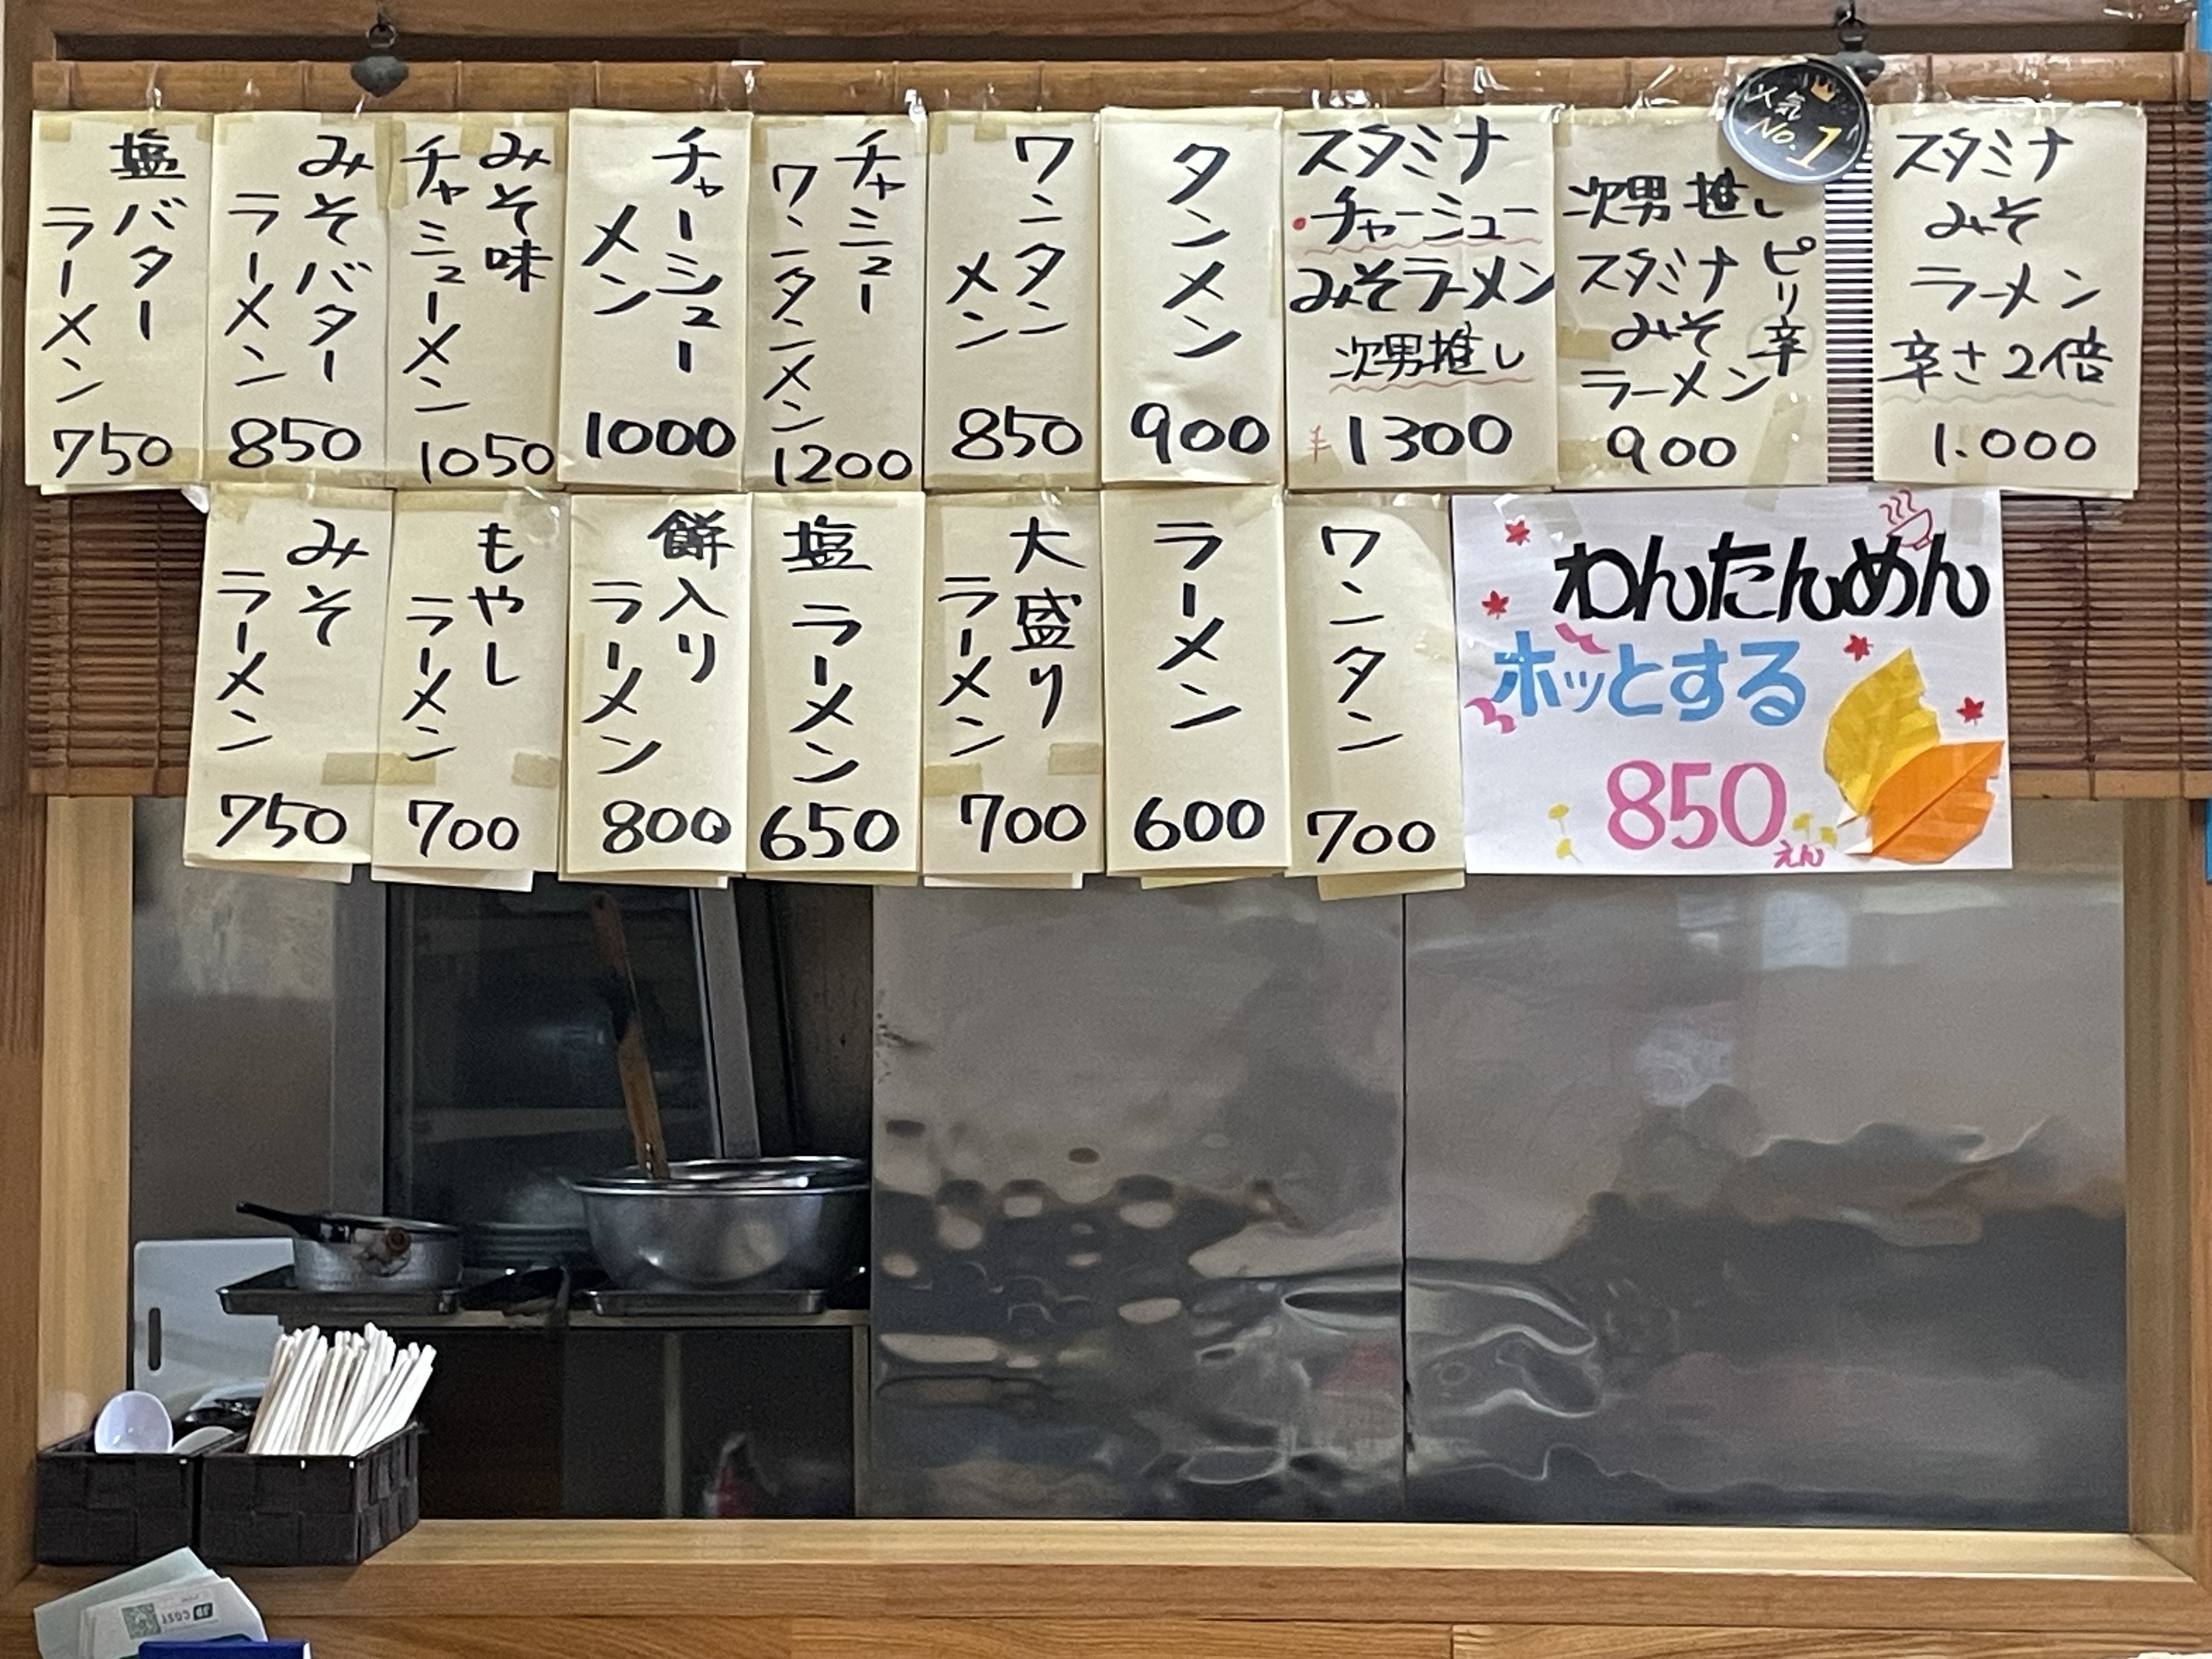 スタミナ
みそ
ラーメン
辛さ2倍
1.000
人気
No.1
次男推し
ピリ辛
スタミナ
みそ
ラーメン
900
スタミナ
チャーシュー
みそラーメン
次男推し
¥1300
タンメン
900
ワンタン
メン
850
チャシュー
ワンタンメン
1200
チャーシュー
メン
1000
みそ味
チャシューメン
1050
みそバター
ラーメン
850
塩バター
ラーメン
750
わんたんめん
ホッとする
850えん
ワンタン
700
ラーメン
600
大盛り
ラーメン
700
塩ラーメン
650
餅入り
ラーメン
800
もやし
ラーメン
700
みそ
ラーメン
750